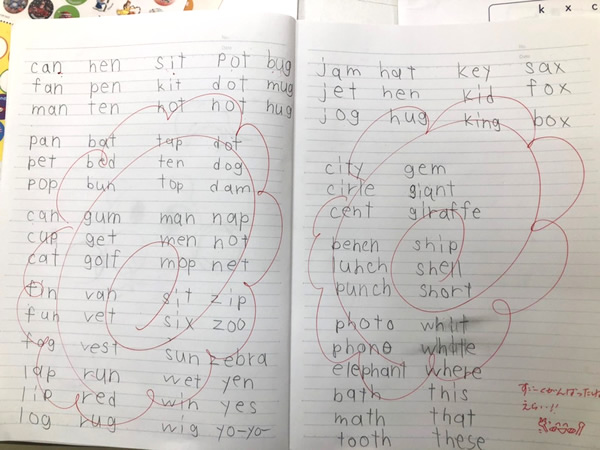 k x c
can hen sit pot bug
fan pen kit dot mug
man ten hot hot hug
pan bat tap dot
pet bed ten dog
pop bun top dam
can gum man nap
cup get men not
cat golf mop net
fin van sit zip
fun vet six zoo
fog vest sun zebra
lap run wet yen
lip red win yes
log rug wig yo-yo
jam hat key sax
jet hen kid fox
jog hug king box
city gem
cirle giant
cent giraffe
bench ship
lunch shell
punch short
photo
phone
elephant where
bath this
math that
tooth these
すごくがんばったね
えらい!!